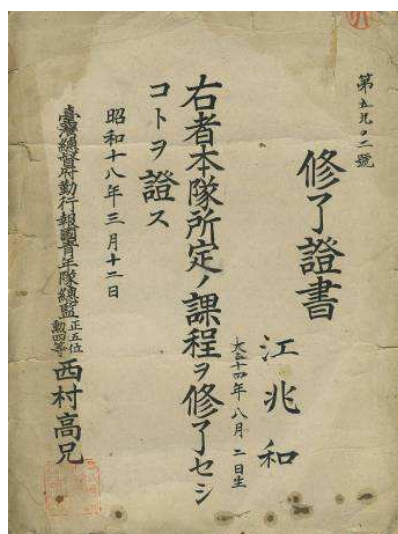 第五九〇二號
修了證書
江兆和
大正十四年八月二日生
右者本隊所定ノ課程ヲ修了セシ
コトヲ證ス
昭和十八年三月十二日
臺灣總督府勤行報國青年隊總監正五位勳四等西村高兄